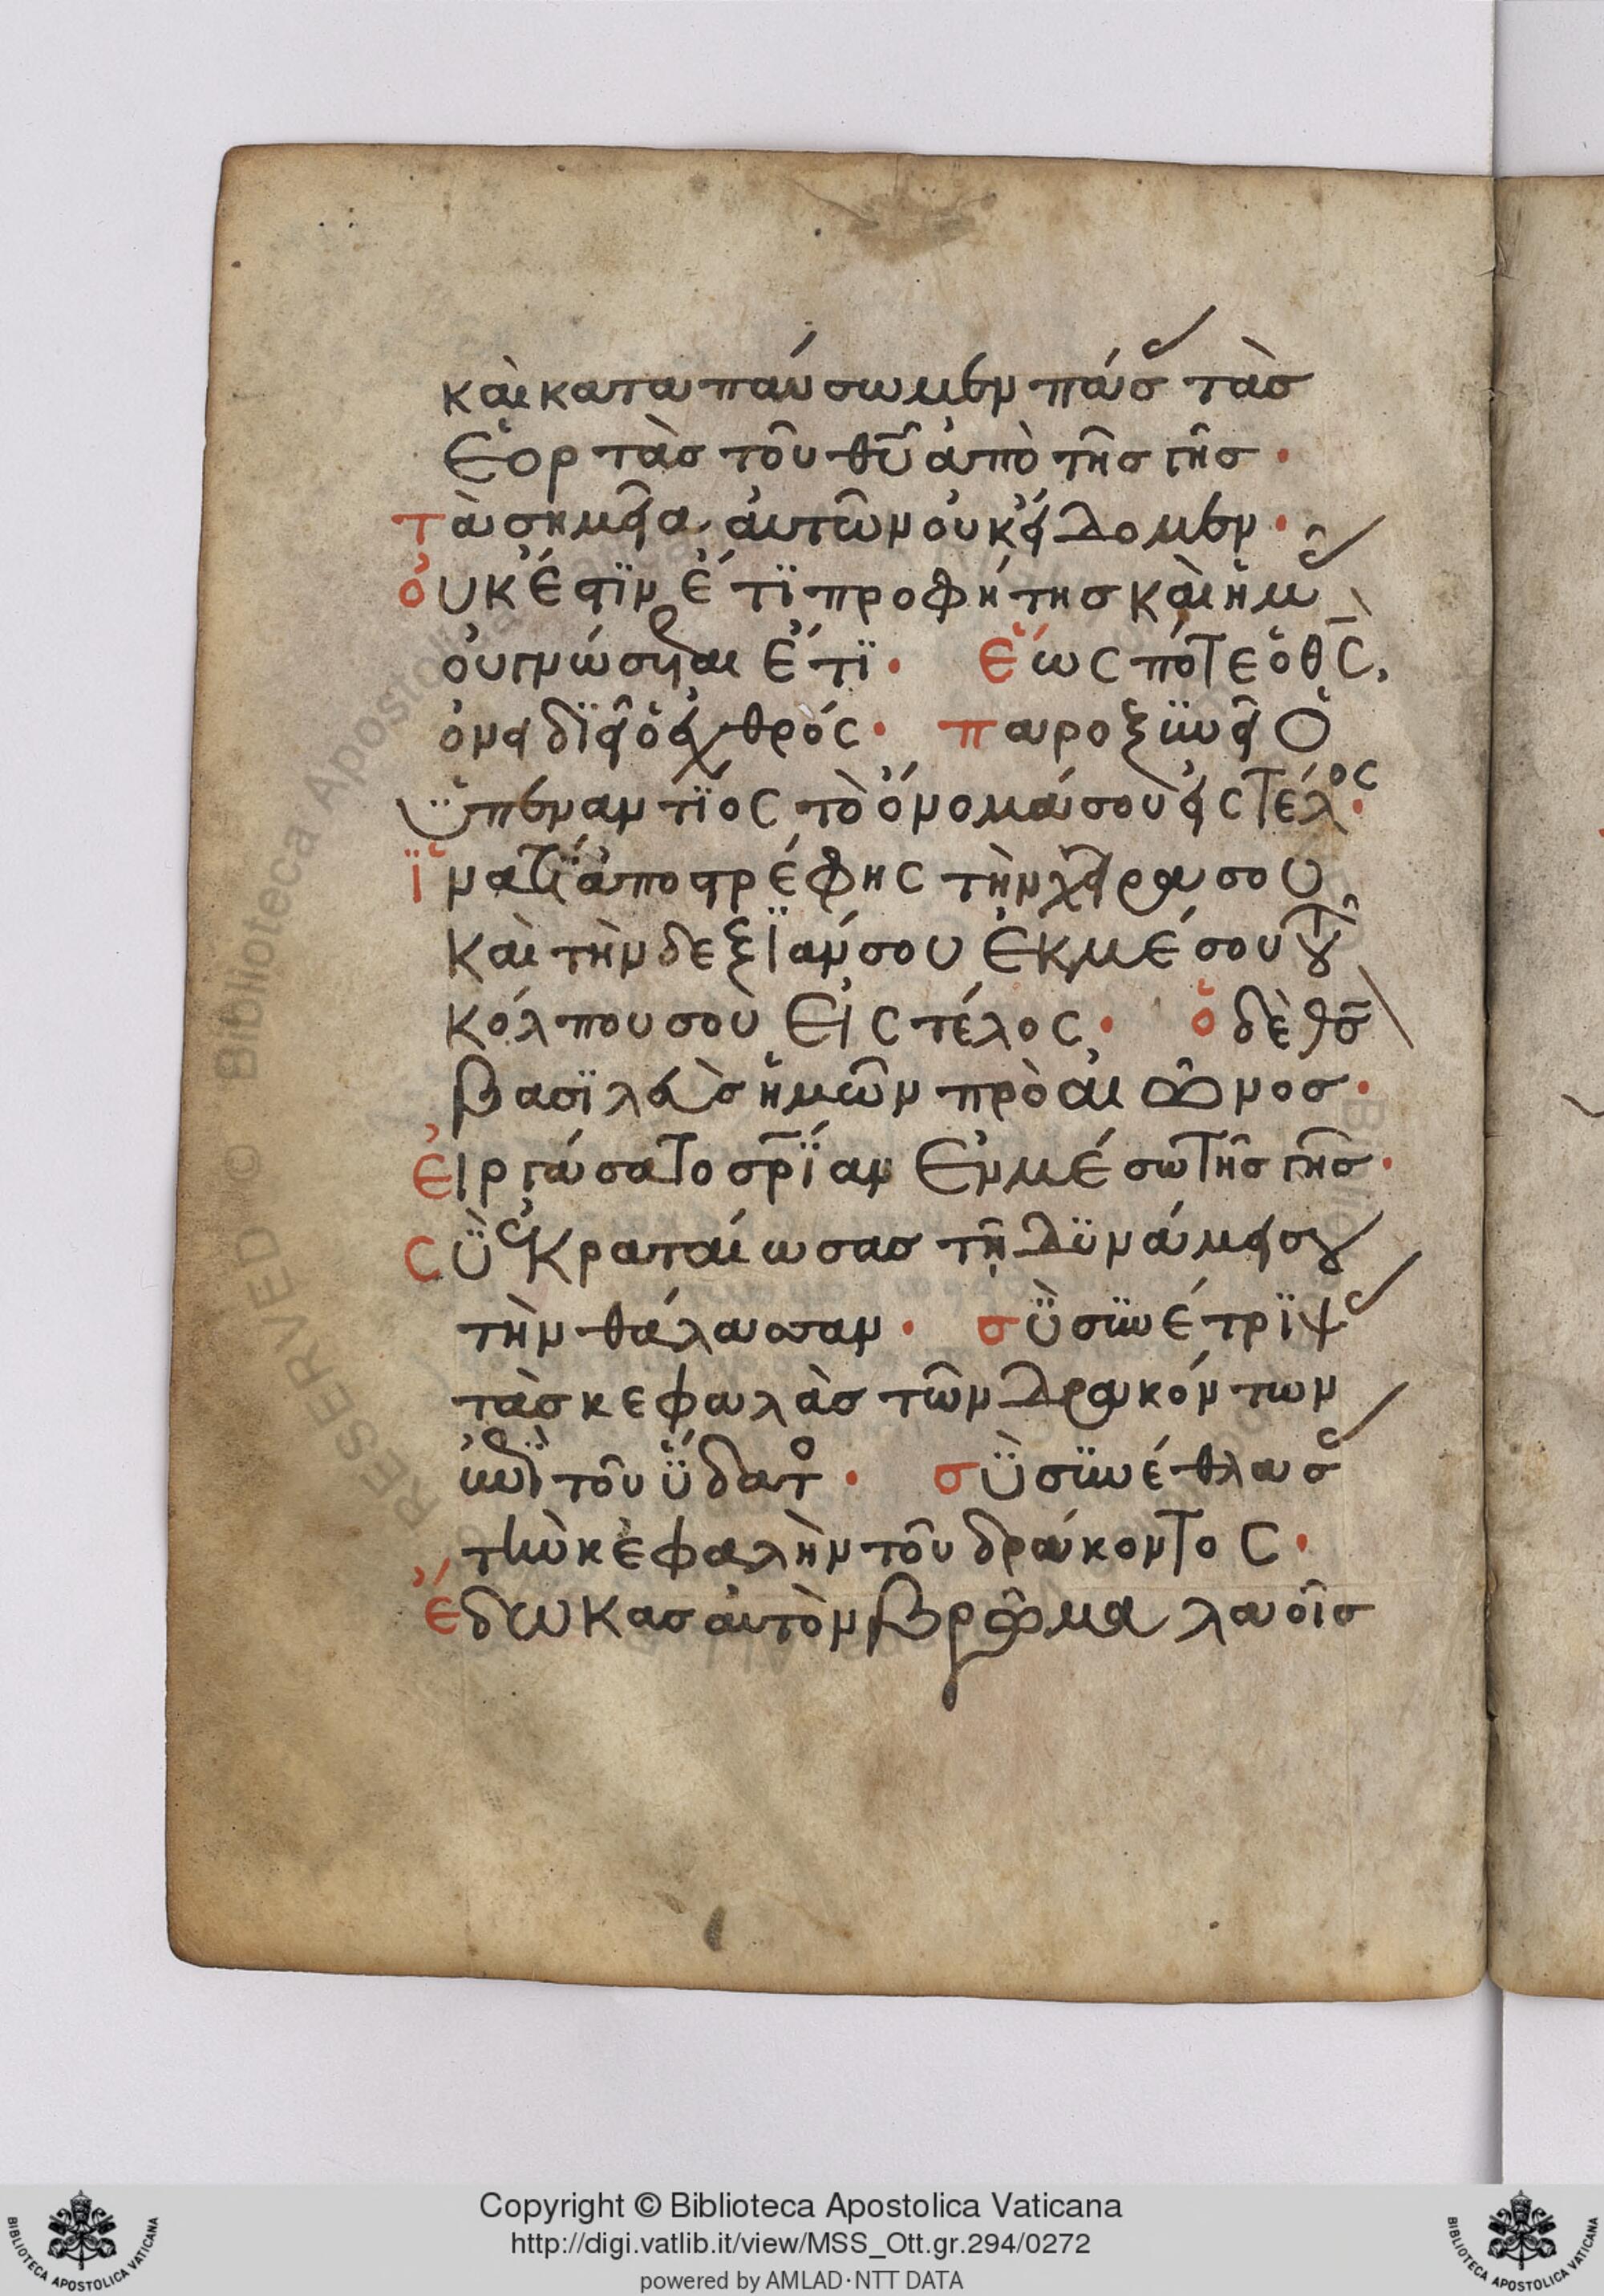 καὶ καταπαύσωμεν πάσ τὰσ
ἑορτὰσ τοῦ θῦ ἀπὸ τῆσ γῆσ ·
τὰ σημεῖα αὐτῶν οὐκ εἴδομεν ·
οὐκ ἔστϊν ἔτϊ προφήτησ καὶ ἡμ
οὐ γνώσεται ἔτϊ · ἕως πότε ὁ θς,
ὀνειδϊεῖ ὁ ἐχθρός · παροξϋνεῖ ὁ
ϋπεναντϊος τὸ ὄνομά σου εἰς τέλος ·
ϊνατί ἀποστρέφης τὴν χεῖρα σου,
καὶ τὴν δεξϊάν σου ἐκ μέσου τοῦ
κόλπου σου εἰς τέλος · ὁ δὲ θσ
βασϊλεὺσ ἡμῶν πρὸ αἰῶνοσ ·
εἰργάσατο σρίαν ἐν μέσω τῆσ γῆσ ·
σϋ ἐκραταίωσασ τῆ δϋνάμει σου
τὴν θάλασσαν · σϋ σϋνέτρϊψ
τὰσ κεφαλὰσ τῶν δρακόντων
ἐπὶ τοῦ ϋδατο · σϋ σϋνέθλασ
τὴν κεφαλὴν τοῦ δράκοντος ·
ἔδωκασ αὐτὸν βρῶμα λαοῖσ
Copyright © Biblioteca Apostolica Vaticana
http://digi.vatlib.it/view/MSS_Ott.gr.294/0272
powered by AMLAD·NTT DATA